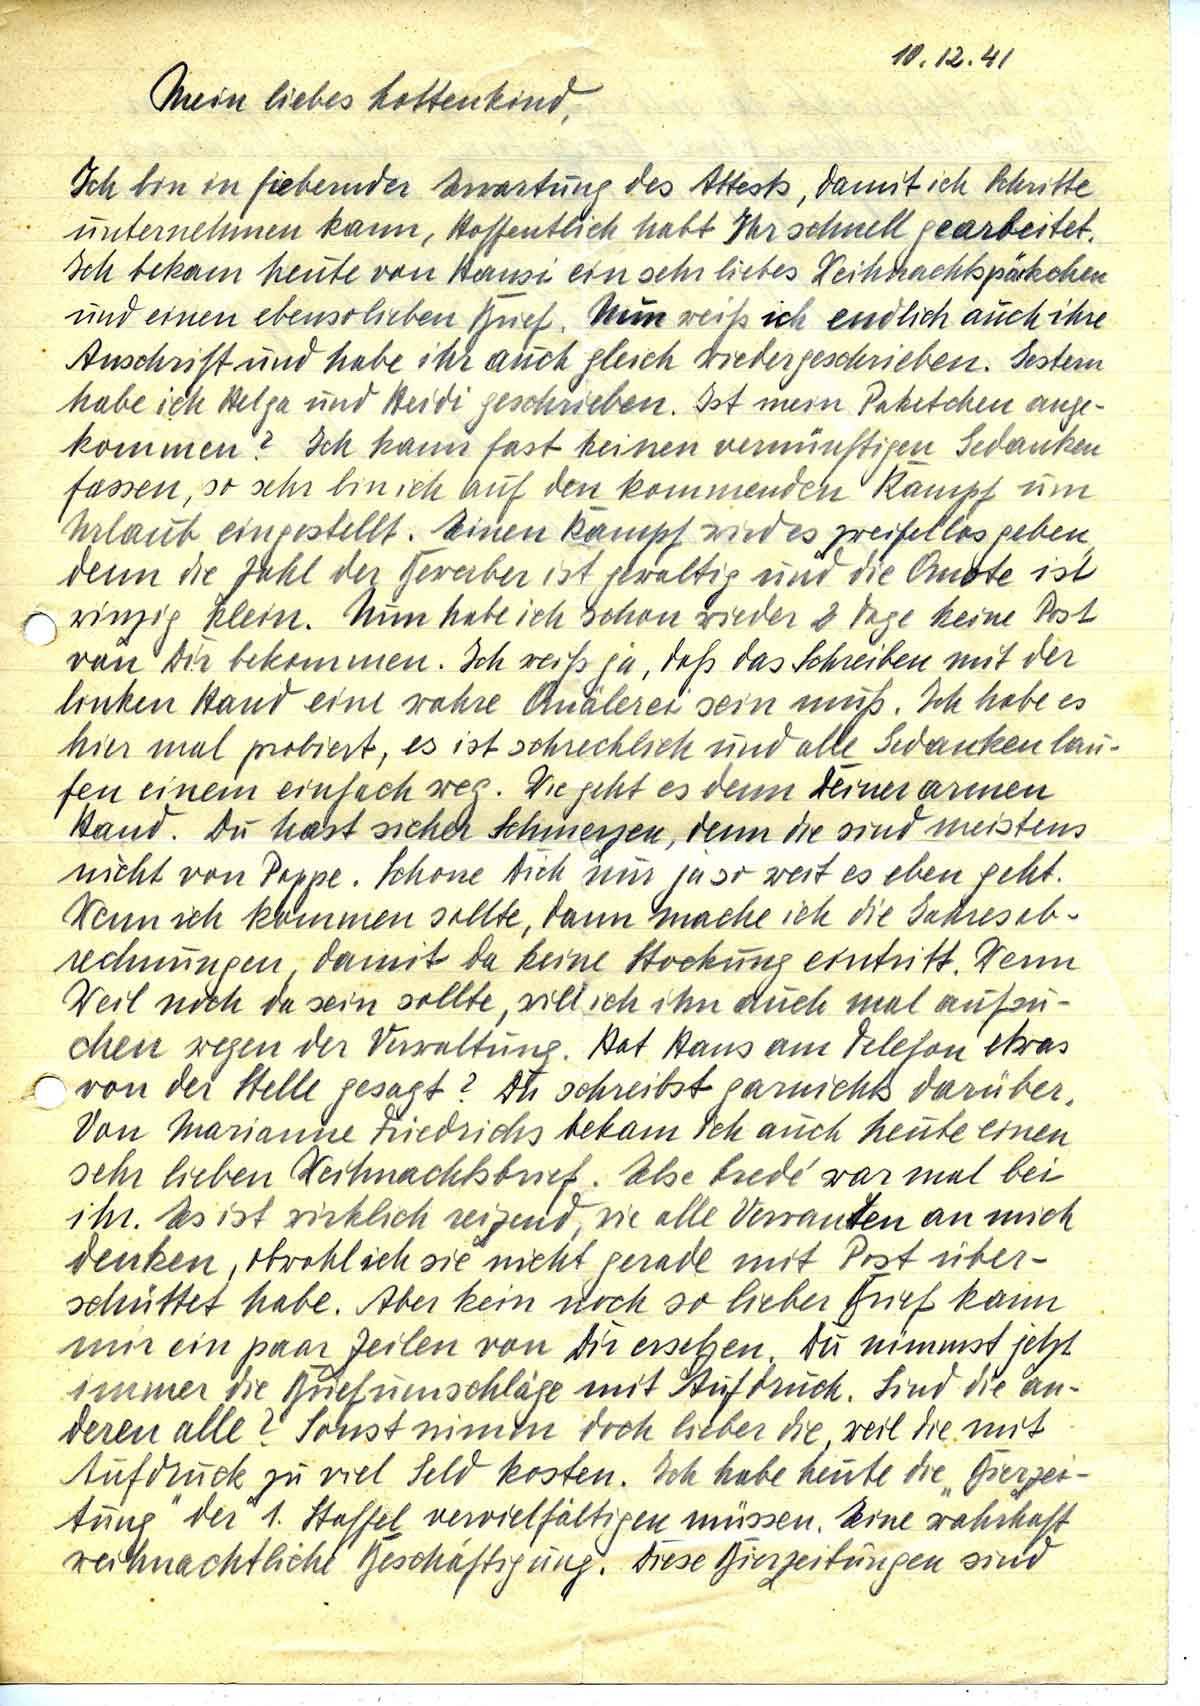 10.12.41
Mein liebes Lottenkind,
Ich bin in fiebernder Erwartung des Attests, damit ich Schritte
unternehmen kann, Hoffentlich habt Ihr schnell gearbeitet.
Ich bekam heute von Hansi ein sehr liebes Weihnachtspäckchen
und einen ebensolieben Brief. Nun weiß ich endlich auch ihre
Anschrift und habe ihr auch gleich wiedergeschrieben. Gestern
habe ich Helga und Heidi geschrieben. Ist mein Paketchen ange-
kommen? Ich kann fast keinen vernünftigen Gedanken
fassen, so sehr bin ich auf den kommenden Kampf um
Urlaub eingestellt. Einen Kampf wird es zweifellos geben,
denn die Zahl der Bewerber ist gewaltig und die Quote ist
winzig klein. Nun habe ich schon wieder 2 Tage keine Post
von Dir bekommen. Ich weiß ja, daß das Schreiben mit der
linken Hand eine wahre Quälerei sein muß. Ich habe es
hier mal probiert, es ist schrecklich und alle Gedanken lau-
fen einem einfach weg. Wie geht es denn Deiner armen
Hand. Du hast sicher Schmerzen, denn die sind meistens
nicht von Pappe. Schone Dich nur ja so weit es eben geht.
Wenn ich kommen sollte, dann mache ich die Jahresab-
rechnungen, damit da keine Stockung eintritt. Wenn
Weil noch da sein sollte, will ich ihn auch mal aufsu-
chen wegen der Verwaltung. Hat Hans am Telefon etwas
von der Stelle gesagt? Du schreibst garnichts darüber.
Von Marianne Friedrichs bekam ich auch heute einen
sehr lieben Weihnachtsbrief. Else Credé war mal bei
ihr. Es ist wirklich reizend, wie alle Verwandten an mich
denken, obwohl ich sie nicht gerade mit Post über-
schüttet habe. Aber kein noch so lieber Brief kann
mir ein paar Zeilen von Dir ersetzen. Du nimmst jetzt
immer die Briefumschläge mit Aufdruck. Sind die an-
deren alle? Sonst nimm doch lieber die, weil die mit
Aufdruck zu viel Geld kosten. Ich habe heute die „Bierzei-
tung" der 1. Staffel vervielfältigen müssen. Eine wahrhaft
weihnachtliche Beschäftigung. Diese Bierzeitungen sind